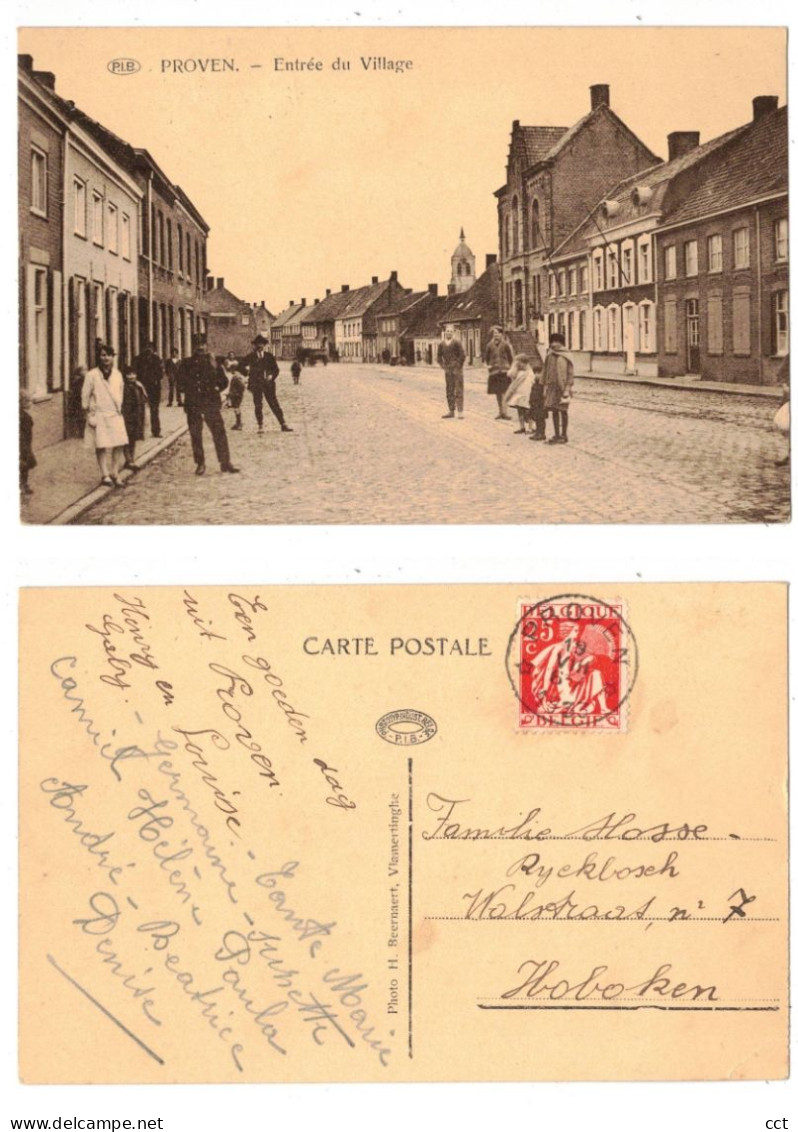 P.I.B. PROVEN. – Entrée du Village
CARTE POSTALE
Een goeden dag
uit Proven.
Henry en Louise. – Tante Marie
Gaby. – Germaine – Jusette
Camiel Hélène Paula
André – Beatrice
Denise
P.I.B.
Photo H. Beernaert, Vlamertinghe
BELGIQUE
25
C
BELGIE
PROVEN
19
VIII
Familie Hosse –
Ryckbosch
Walstraat, nr 7
Hoboken
© delcampe.net
cct